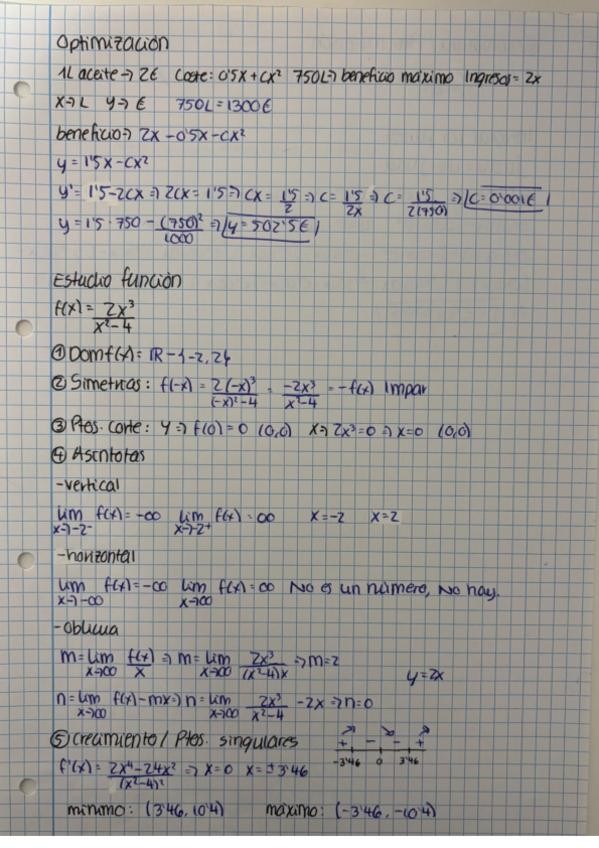 Optimización
1L aceite → 2€ Coste: 0'5x + cx² 750L → beneficio máximo Ingresos = 2x
x → L y → € 750L = 1300€
beneficio ⇒ 2x - 0'5x - cx²
y = 1'5x - cx²
y' = 1'5 - 2cx ⇒ 2cx = 1'5 ⇒ cx = 1'5/2 ⇒ c = 1'5/2x ⇒ c = 1'5/2(750) ⇒ c = 0'001€
y = 1'5 · 750 - (750)²/1000 ⇒ y = 502'5€
Estudio función
f(x) = 2x³/x²-4
① Dom f(x) = ℝ - {-2, 2}
② Simetrias: f(-x) = 2(-x)³/(-x)²-4 = -2x³/x²-4 = -f(x) Impar
③ Ptos. corte: y ⇒ f(0) = 0 (0,0) x ⇒ 2x³ = 0 ⇒ x = 0 (0,0)
④ Asíntotas
-vertical
lim x→-2⁻ f(x) = -∞ lim x→-2⁺ f(x) = ∞ x = -2 x = 2
-horizontal
lim x→-∞ f(x) = -∞ lim x→∞ f(x) = ∞ No es un número, No hay.
-oblicua
m = lim x→∞ f(x)/x ⇒ m = lim x→∞ 2x³/(x²-4)x ⇒ m = 2
y = 2x
n = lim x→∞ f(x) - mx ⇒ n = lim x→∞ 2x³/x²-4 - 2x ⇒ n = 0
⑤ Crecimiento / Ptos. singulares
+ - - +
-3'46 0 3'46
f'(x) = 2x⁴ - 24x²/(x²-4)² ⇒ x = 0 x = ±3'46
mínimo: (3'46, 10'4) máximo: (-3'46, -10'4)